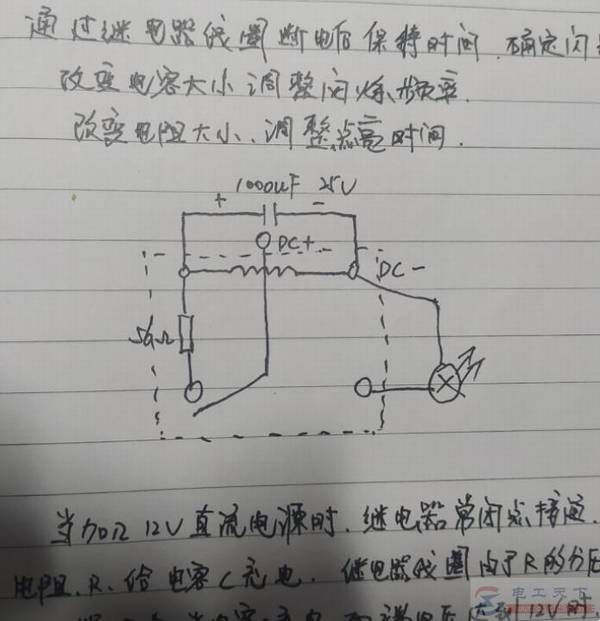 通过继电器线圈断电后保持时间.确定闪
改变电容大小调整闪烁频率.
改变电阻大小、调整点亮时间.
1000uF 25V
+ -
DC+
DC-
Ω
当加以12V直流电源时.继电器常闭点接通.
电阻.R.给电容C充电.继电器线圈由于R的分压
到12V时.
电工天下